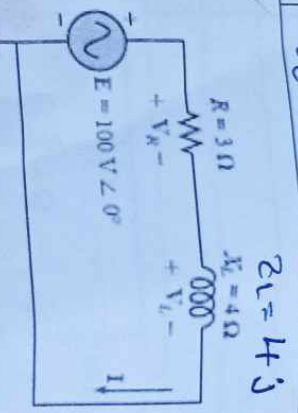 Z_L = 4j
R = 3 Ω
X_L = 4 Ω
+ V_R −
+ V_L −
− +
E = 100 V ∠ 0°
I